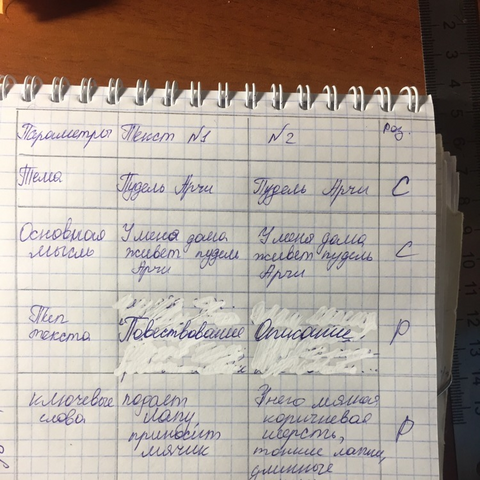 Параметры Текст №1 №2 Раз.
Тема Пудель Арчи Пудель Арчи С
Основная У меня дома У меня дома
мысль живет пудель живет пудель С
Арчи Арчи
Тип
текста Повествование Описание Р
ключевые подает У него мягкая
слова лапу, коричневая
приносит шерсть, Р
мячик тонкие лапки,
длинные